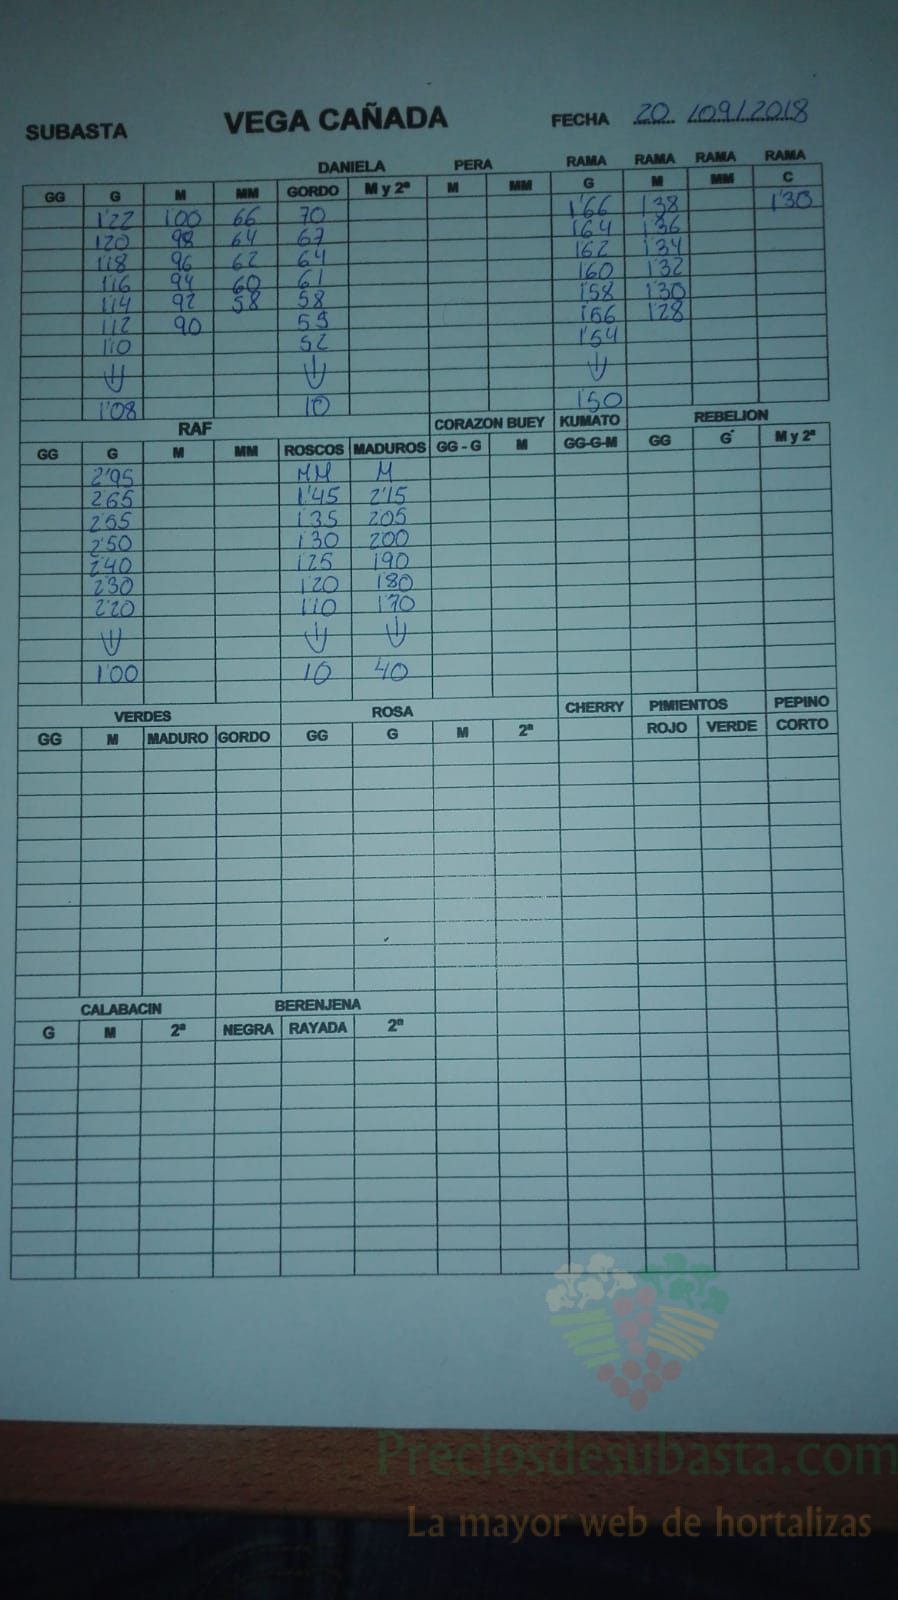 SUBASTA VEGA CAÑADA FECHA 20 /09/2018
DANIELA PERA RAMA RAMA RAMA RAMA
GG G M MM GORDO M y 2ª M MM G M MM C
1'22 1'00 66 70 1'66 1'38 1'30
1'20 98 64 67 1'64 1'36
1'18 96 62 64 1'62 1'34
1'16 94 60 61 1'60 1'32
1'14 92 58 58 1'58 1'30
1'12 90 55 1'56 1'28
1'10 52 1'54
1'08 10 1'50
RAF CORAZON BUEY KUMATO REBELION
GG G M MM ROSCOS MADUROS GG - G M GG-G-M GG G M y 2ª
2'95 MM M
2'65 1'45 2'15
2'55 1'35 2'05
2'50 1'30 2'00
2'40 1'25 1'90
2'30 1'20 1'80
2'20 1'10 1'70
1'00 10 40
VERDES ROSA CHERRY PIMIENTOS PEPINO
GG M MADURO GORDO GG G M 2ª ROJO VERDE CORTO
CALABACIN BERENJENA
G M 2ª NEGRA RAYADA 2ª
Preciosdesubasta.com
La mayor web de hortalizas